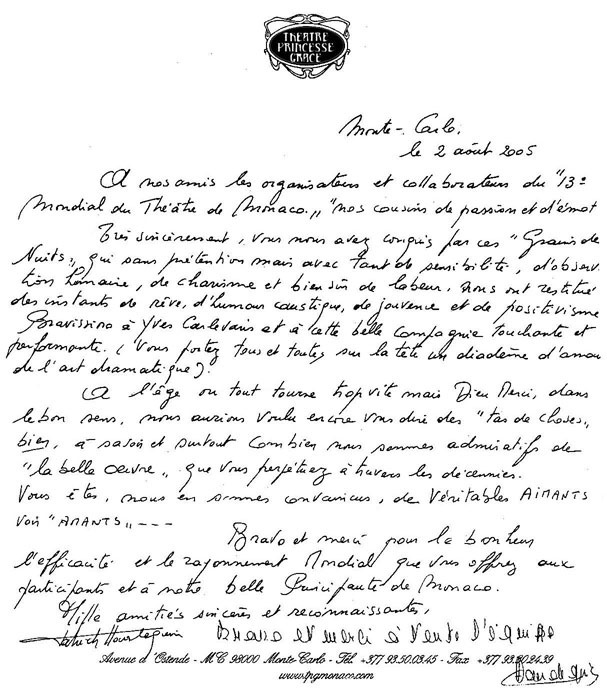 THEATRE
PRINCESSE
GRACE
Monte-Carlo,
le 2 août 2005
A nos amis les organisateurs et collaborateurs du "13e
Mondial du Théâtre de Monaco" "nos cousins de passion et d'émot
Très sincèrement, vous nous avez conquis par ces "Grains de
Nuits", qui sans prétention mais avec tant de sensibilité, d'observ
tion humaine, de charisme et bien sûr de labeur. Nous ont restitué
des instants de rêve, d'humour caustique, de jouvence et de positivisme
Bravissimo à Yves Carlevaris et à cette belle compagnie touchante et
performante. (Vous portez tous et toutes sur la tête un diadème d'amou
de l'art dramatique).
A l'âge où tout tourne trop vite mais Dieu Merci, dans
le bon sens, nous aurions voulu encore vous dire des "tas de choses"
bien, à savoir et surtout combien nous sommes admiratifs de
"la belle œuvre" que vous perpétuez à travers les décennies.
Vous êtes, nous en sommes convaincus, de Véritables AIMANTS
voir "AMANTS" ---
Bravo et merci pour le bonheur
l'efficacité et le rayonnement Mondial que vous offrez aux
participants et à notre belle Principauté de Monaco.
Mille amitiés sincères et reconnaissantes,
Patrick Bravo et merci à toute l'équipe
Avenue d'Ostende - MC 98000 Monte-Carlo - Tél. +377 93.50.03.45 - Fax +377 93.30.24.39
www.tpgmonaco.com